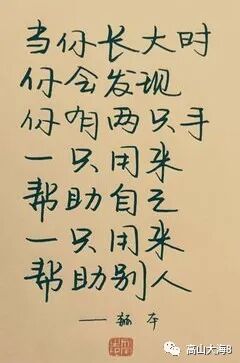 当你长大时
你会发现
你有两只手
一只用来
帮助自己
一只用来
帮助别人
—赫本
高山大海8